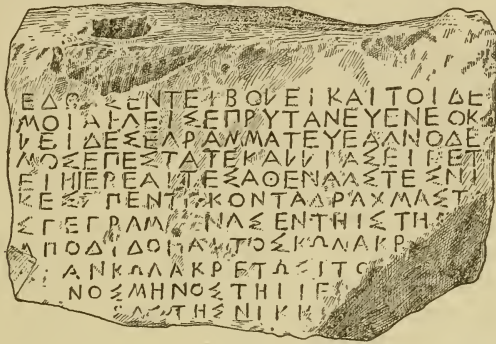 ΕΔΟΧΣΕΝΤΕΙΒΟΛΕΙΚΑΙΤΟΙΔΕ
ΜΟΙΑΙΓΕΙΣΕΠΡΥΤΑΝΕΥΕΝΕΟΚ
ΛΕΙΔΕΣΕΓΡΑΜΜΑΤΕΥΕΑΓΝΟΔΕ
ΜΟΣΕΠΕΣΤΑΤΕΚΑΛΛΙΑΣΕΙΠΕΤ
ΕΙΗΙΕΡΕΑΙΤΕΣΑΘΕΝΑΑΣΤΕΣΝΙ
ΚΕΣΠΕΝΤΕΚΟΝΤΑΔΡΑΧΜΑΣΤ
ΑΣΓΕΓΡΑΜΕΝΑΣΕΝΤΗΙΣΤΗΛ
ΑΠΟΔΙΔΟΝΑΙΤΟΣΚΩΛΑΚΡ
ΑΝΚΩΛΑΚΡΕΤΩΣΙΤΟ
ΝΟΣΜΗΝΟΣΤΗΙΙΕ
ΤΗΣΝΙΚΗ